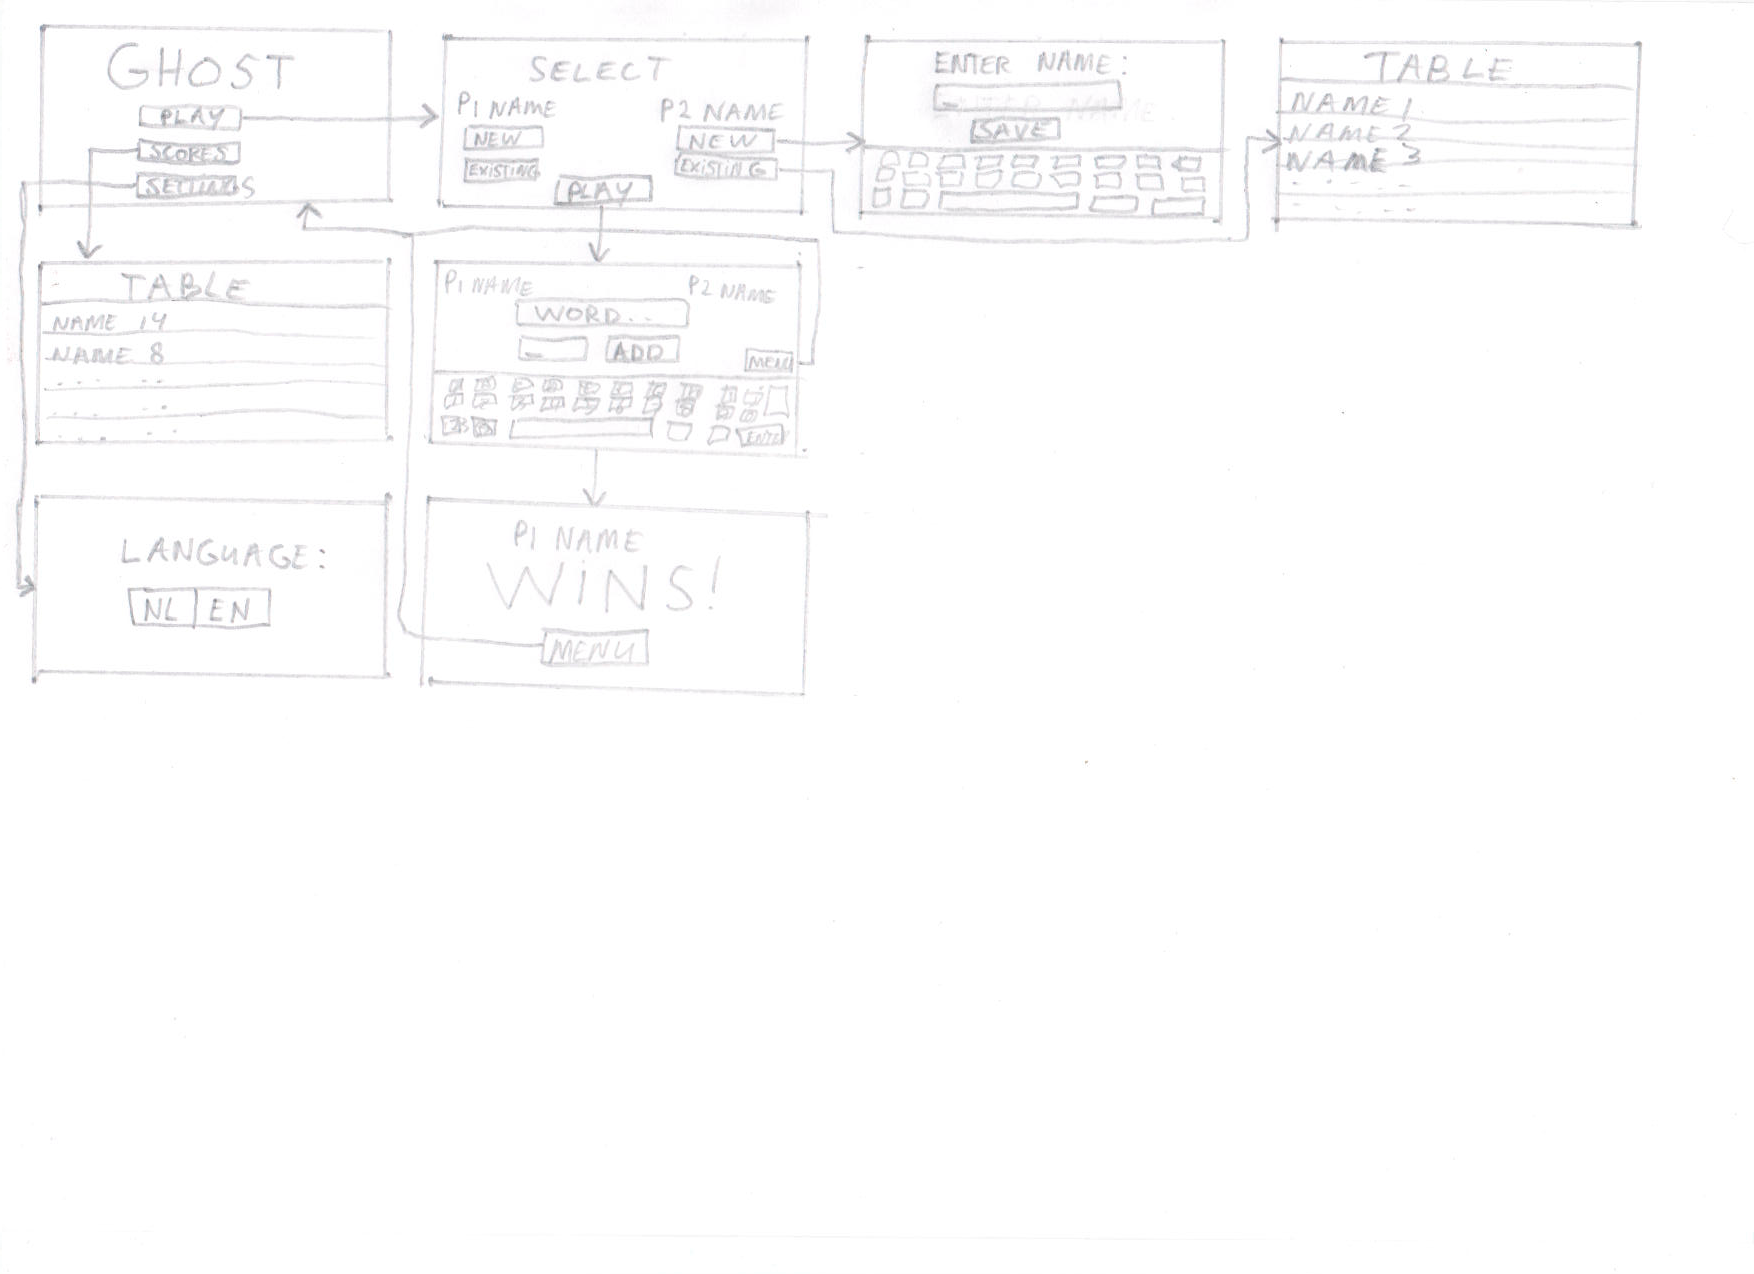 GHOST
PLAY
SCORES
SETTINGS
SELECT
P1 NAME
P2 NAME
NEW
NEW
EXISTING
EXISTING
PLAY
ENTER NAME:
_
SAVE
TABLE
NAME 1
NAME 2
NAME 3
TABLE
NAME 14
NAME 8
P1 NAME
P2 NAME
WORD..
_
ADD
MENU
LANGUAGE:
NL EN
P1 NAME
WINS!
MENU